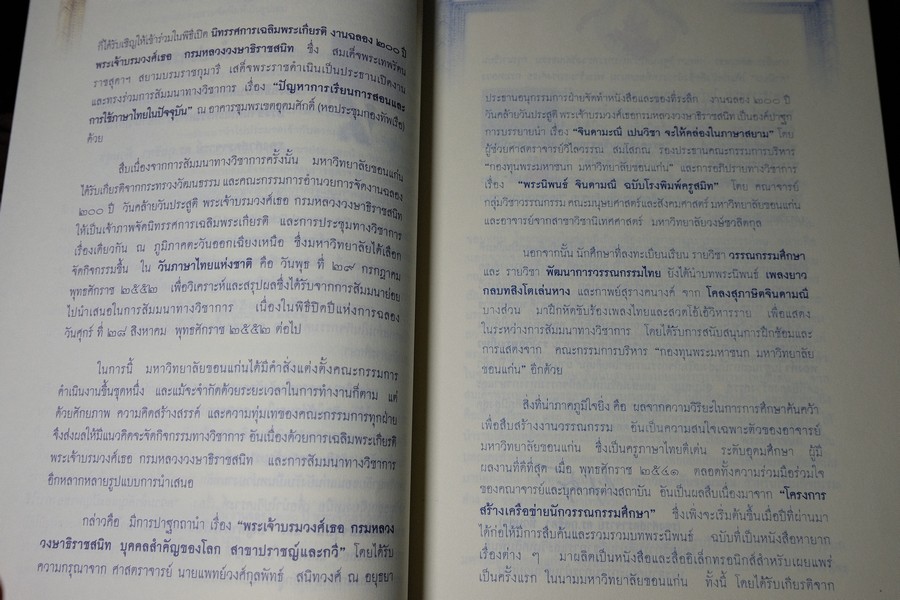 ก็ได้รับเชิญให้เข้าร่วมในพิธีเปิด นิทรรศการเฉลิมพระเกียรติ งานฉลอง ๒๐๐ ปี
พระเจ้าบรมวงศ์เธอ กรมหลวงวงษาธิราชสนิท ซึ่ง สมเด็จพระเทพรัตน
ราชสุดาฯ สยามบรมราชกุมารี เสด็จพระราชดำเนินเป็นประธานเปิดงาน
และทรงร่วมการสัมมนาทางวิชาการ เรื่อง “ปัญหาการเรียนการสอนและ
การใช้ภาษาไทยในปัจจุบัน” ณ อาคารชุมพรเขตอุดมศักดิ์ (หอประชุมกองทัพเรือ)
ด้วย
สืบเนื่องจากการสัมมนาทางวิชาการครั้งนั้น มหาวิทยาลัยขอนแก่น
ได้รับเกียรติจากกระทรวงวัฒนธรรม และคณะกรรมการอำนวยการจัดงานฉลอง
๒๐๐ ปี วันคล้ายวันประสูติ พระเจ้าบรมวงศ์เธอ กรมหลวงวงษาธิราชสนิท
ให้เป็นเจ้าภาพจัดนิทรรศการเฉลิมพระเกียรติ และการประชุมทางวิชาการ
เรื่องเดียวกัน ณ ภูมิภาคตะวันออกเฉียงเหนือ ซึ่งมหาวิทยาลัยได้เลือก
จัดกิจกรรมขึ้น ใน วันภาษาไทยแห่งชาติ คือ วันพุธ ที่ ๒๙ กรกฎาคม
พุทธศักราช ๒๕๕๒ เพื่อวิเคราะห์และสรุปผลซึ่งได้รับจากการสัมมนาย่อย
ไปนำเสนอในการสัมมนาทางวิชาการ เนื่องในพิธีปิดปีแห่งการฉลอง
วันศุกร์ ที่ ๒๘ สิงหาคม พุทธศักราช ๒๕๕๒ ต่อไป
ในการนี้ มหาวิทยาลัยขอนแก่นได้มีคำสั่งแต่งตั้งคณะกรรมการ
ดำเนินงานขึ้นชุดหนึ่ง และแม้จะจำกัดด้วยระยะเวลาในการทำงานก็ตาม แต่
ด้วยศักยภาพ ความคิดสร้างสรรค์ และความทุ่มเทของคณะกรรมการทุกฝ่าย
จึงส่งผลให้มีแนวคิดจะจัดกิจกรรมทางวิชาการ อันเนื่องด้วยการเฉลิมพระเกียรติ
พระเจ้าบรมวงศ์เธอ กรมหลวงวงษาธิราชสนิท และการสัมมนาทางวิชาการ
อีกหลากหลายรูปแบบการนำเสนอ
กล่าวคือ มีการปาฐกถานำ เรื่อง “พระเจ้าบรมวงศ์เธอ กรมหลวง
วงษาธิราชสนิท บุคคลสำคัญของโลก สาขาปราชญ์และกวี” โดยได้รับ
ความกรุณาจาก ศาสตราจารย์ นายแพทย์วงศ์กุลพัทธ์ สนิทวงศ์ ณ อยุธยา
ประธานอนุกรรมการฝ่ายจัดทำหนังสือและของที่ระลึก งานฉลอง ๒๐๐ ปี
วันคล้ายวันประสูติ พระเจ้าบรมวงศ์เธอกรมหลวงวงษาธิราชสนิท เป็นองค์ปาฐก
การบรรยายนำ เรื่อง “จินดามะณี เปนวิชา จะให้คล่องในภาษาสยาม” โดย
ผู้ช่วยศาสตราจารย์วิไลวรรณ สมโสภณ รองประธานคณะกรรมการบริหาร
“กองทุนพระมหาชนก มหาวิทยาลัยขอนแก่น” และการอภิปรายทางวิชาการ
เรื่อง “พระนิพนธ์ จินดามณี ฉบับโรงพิมพ์ครูสมิท” โดย คณาจารย์
กลุ่มวิชาวรรณกรรม คณะมนุษยศาสตร์และสังคมศาสตร์ มหาวิทยาลัยขอนแก่น
และอาจารย์จากสาขาวิชานิเทศศาสตร์ มหาวิทยาลัยวงษ์ชวลิตกุล
นอกจากนั้น นักศึกษาที่ลงทะเบียนเรียน รายวิชา วรรณกรรมศึกษา
และ รายวิชา พัฒนาการวรรณกรรมไทย ยังได้นำบทพระนิพนธ์ เพลงยาว
กลบทสิงโตเล่นหาง และกาพย์สุรางคนางค์ จาก โคลงสุภาษิตจินดามณี
บางส่วน มาฝึกหัดขับร้องเพลงไทยและสวดโอ้เอ้วิหารราย เพื่อแสดง
ในระหว่างการสัมมนาทางวิชาการ โดยได้รับการสนับสนุนการฝึกซ้อมและ
การแสดงจาก คณะกรรมการบริหาร “กองทุนพระมหาชนก มหาวิทยาลัย
ขอนแก่น” อีกด้วย
สิ่งที่น่าภาคภูมิใจยิ่ง คือ ผลจากความวิริยะในการการศึกษาค้นคว้า
เพื่อสืบสร้างงานวรรณกรรม อันเป็นความสนใจเฉพาะตัวของอาจารย์
มหาวิทยาลัยขอนแก่น ซึ่งเป็นครูภาษาไทยดีเด่น ระดับอุดมศึกษา ผู้มี
ผลงานที่ดีที่สุด เมื่อ พุทธศักราช ๒๕๔๑ ตลอดทั้งความร่วมมือร่วมใจ
ของคณาจารย์และบุคลากรต่างสถาบัน อันเป็นผลสืบเนื่องมาจาก “โครงการ
สร้างเครือข่ายนักวรรณกรรมศึกษา” ซึ่งเพิ่งจะเริ่มต้นขึ้นเมื่อปีที่ผ่านมา
ได้ก่อให้มีการสืบค้นและรวมรวมบทพระนิพนธ์ ฉบับที่เป็นหนังสือหายาก
เรื่องต่าง ๆ มาผลิตเป็นหนังสือและสื่ออิเล็กทรอนิกส์สำหรับเผยแพร่
เป็นครั้งแรก ในนามมหาวิทยาลัยขอนแก่น ทั้งนี้ โดยได้รับเกียรติจาก